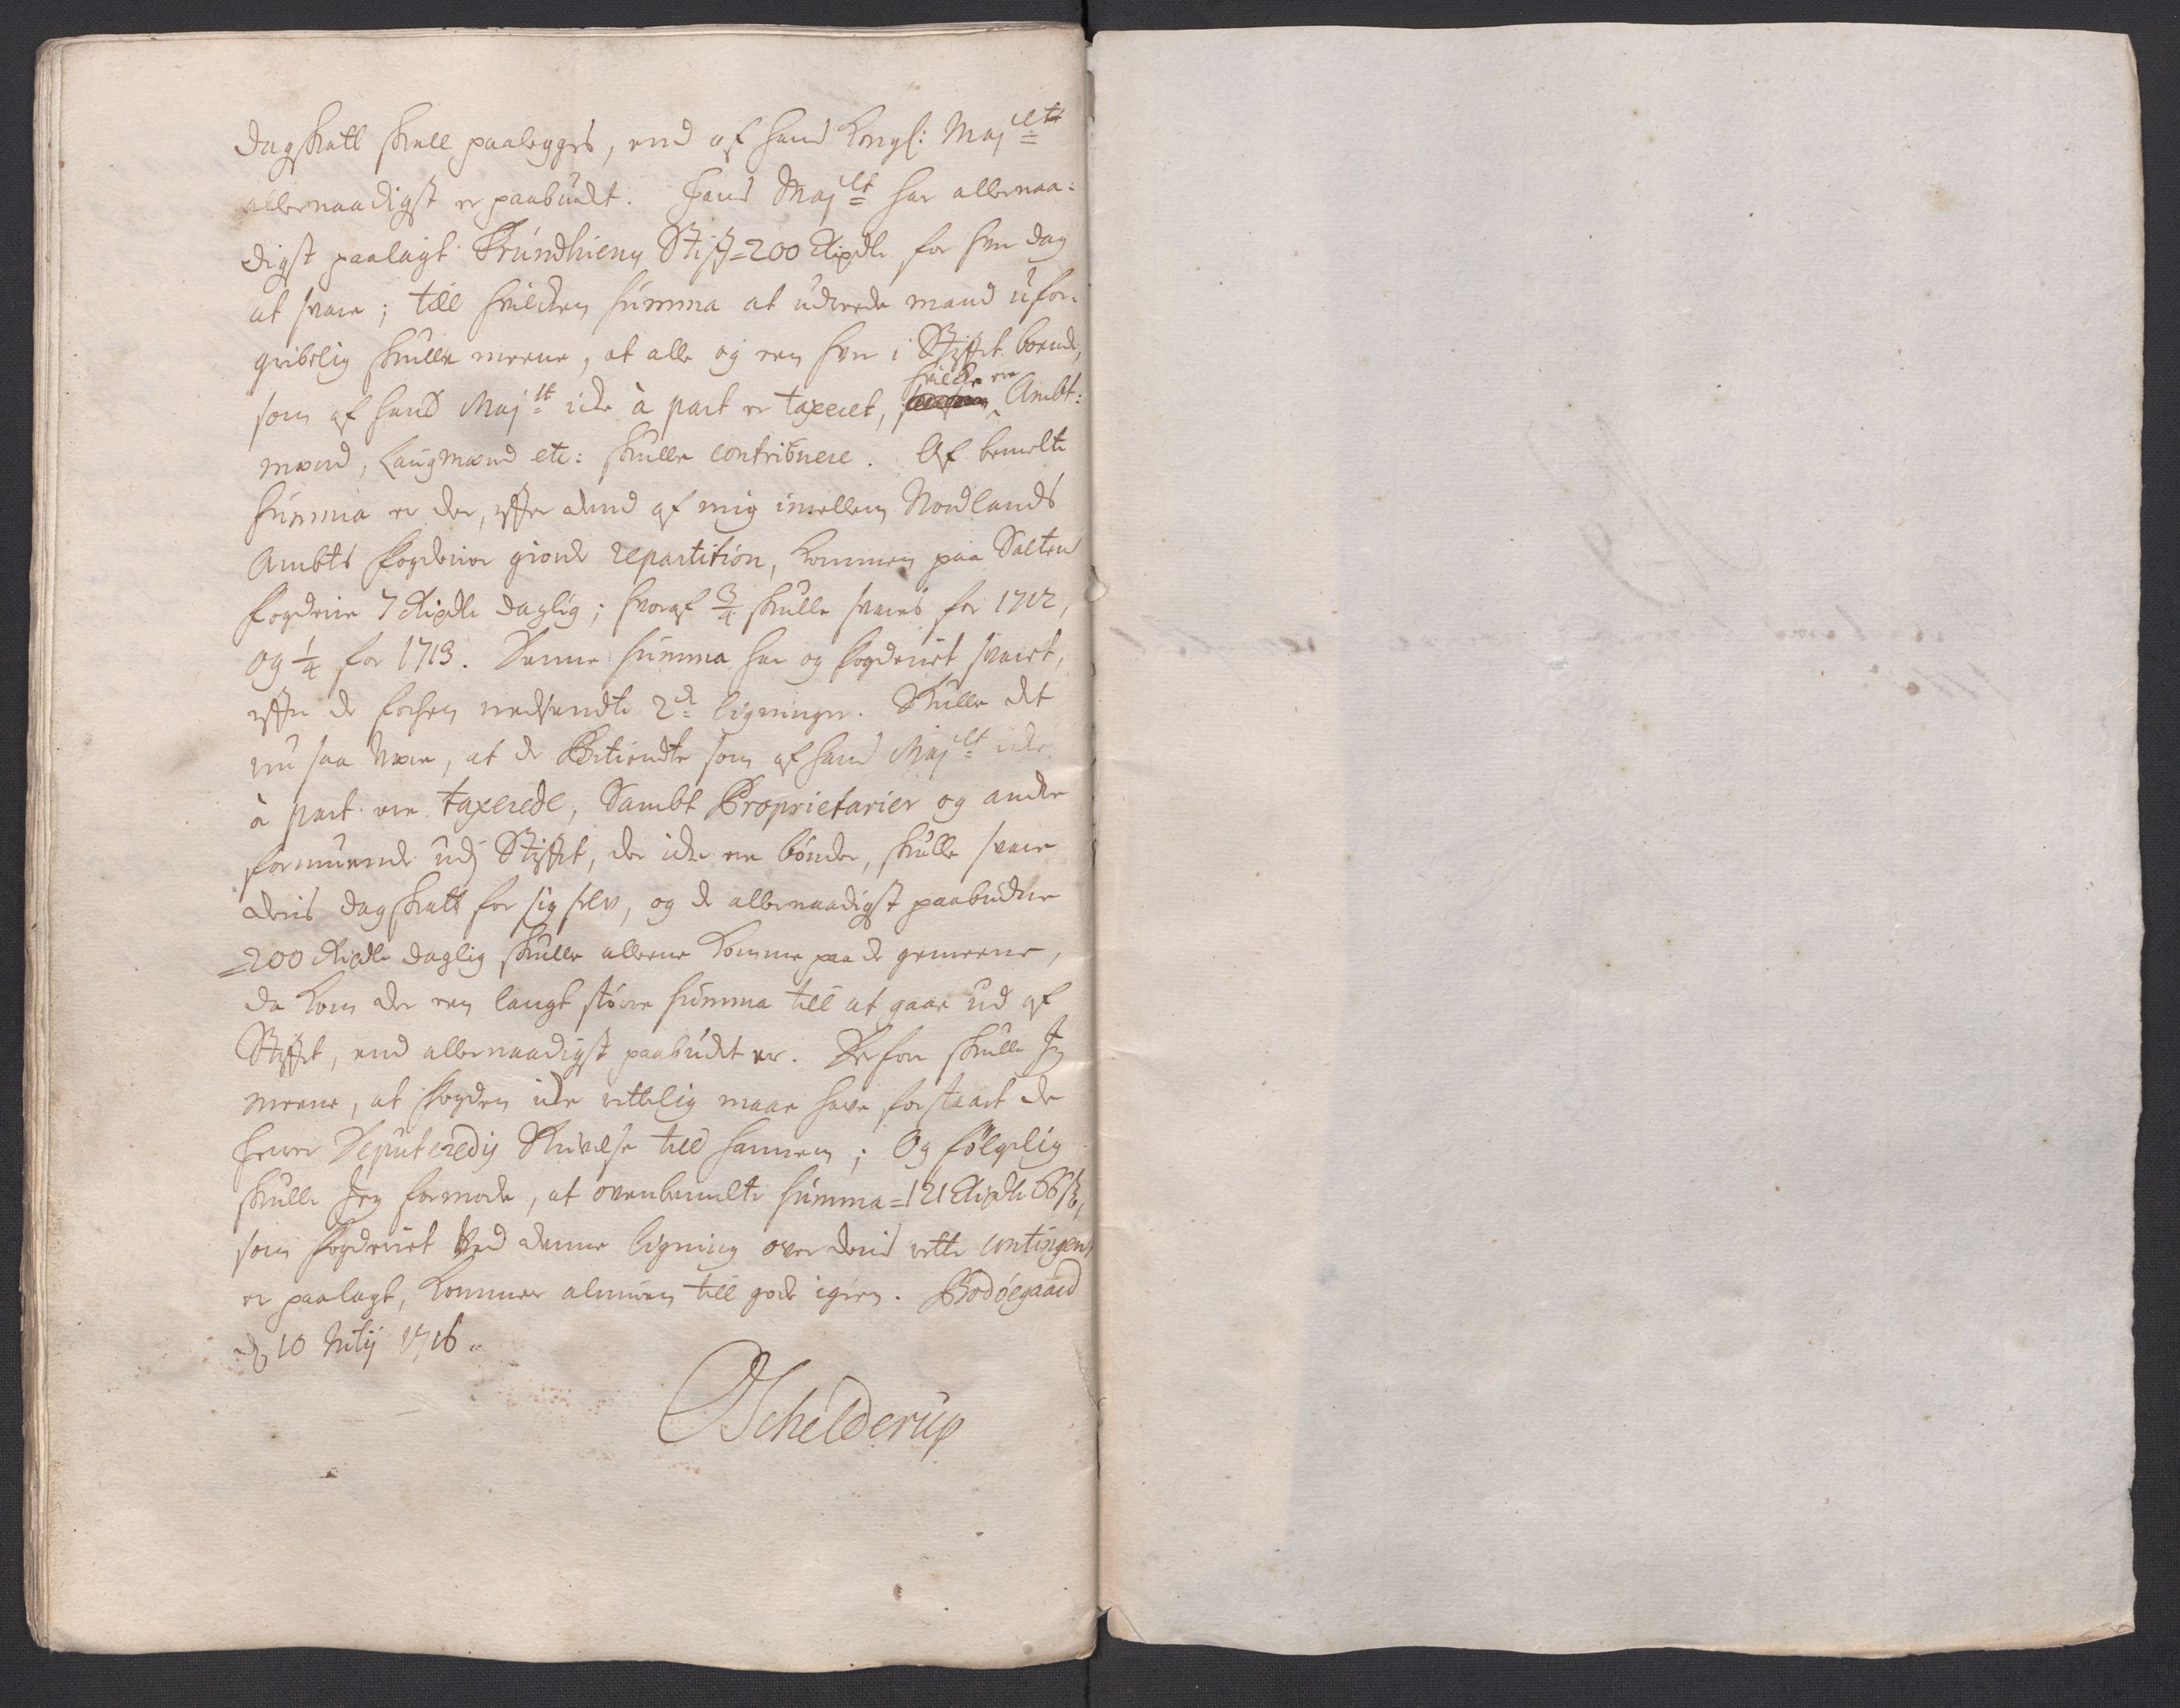 dagskatt skall paalegges, end af hans Kongl: Maj^(tt)
allernaadigst er paabudt. Hans Maj^(tt) har allernaa=
digst paalagt Trundhiems Stift = 200 Rixdlr for hver dag
at svare; till hvilcken summa at udreede mand ufor=
gribelig skulle meene, at alle og een hver i Stiftet boende,
som af hans Maj^(tt) icke à part er taxeret, hvilcke ere Ambt:
mænd, Laugmænd etc: skulle contribuere. Af bemelte
summa er der, effter dend af mig imellem Nordlands
Ambts fogderier giorde repartition, kommen paa Saltens
fogderie 7 Rixdlr daglig; hvoraf 3/4 skulle svares for 1712,
og 1/4 for 1713. Denne summa har og fogderiet svaret,
effter de forhen nedsendte 2de ligninger. Skulle det
nu saa være, at de Betiendte som af hans Maj^(tt) icke
à part ere taxerede, Sambt Proprietarier og andre
formuende udj Stiftet, der icke ere bønder, skulle svare
deris dagskatt for sig selv, og de allernaadigst paabudne
= 200 Rixdlr daglig skulle alleene komme paa de gemeene,
da kom der een langt større summa till at gaae ud af
Stiftet, end allernaadigst paabudet er. Derfore skulle Jeg
meene, at fogden icke rettelig maae have forstaaet de
Herrer Deputeredis Skrivelse till hannem; Og følgelig
skulle Jeg formode, at ovenbemelte summa = 121 Rixdlr 66 s,
som fogderiet ved denne ligning over deris rette contingent
er paalagt, kommer almuen till gode igien. Bodøegaard
d 10 Martij 1716.
Schelderup